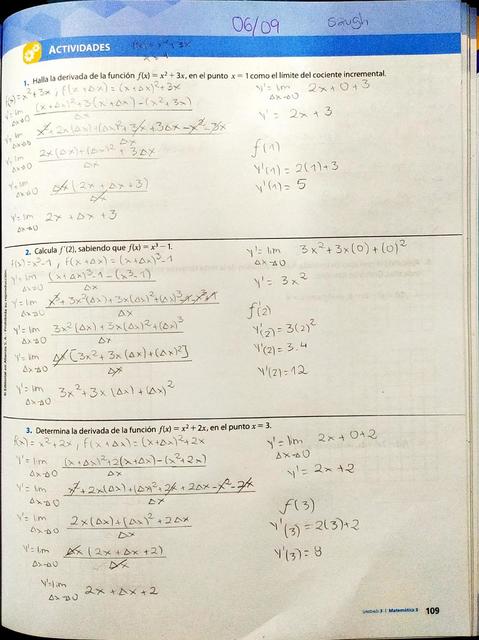 06/09 Saugh
ACTIVIDADES f(x) = x² + 3x
1. Halla la derivada de la función f(x) = x² + 3x, en el punto x = 1 como el límite del cociente incremental.
f(x) = x² + 3x , f(x+Δx) = (x+Δx)² + 3x
y' = lim Δx→0 (x+Δx)² + 3(x+Δx) - (x² + 3x) / Δx
y' = lim Δx→0 x² + 2x(Δx) + (Δx)² + 3x + 3Δx - x² - 3x / Δx
y' = lim Δx→0 2x(Δx) + (Δx)² + 3Δx / Δx
y' = lim Δx→0 Δx (2x + Δx + 3) / Δx
y' = lim Δx→0 2x + Δx + 3
y' = lim Δx→0 2x + 0 + 3
y' = 2x + 3
f(1)
y'(1) = 2(1) + 3
y'(1) = 5
2. Calcula f'(2), sabiendo que f(x) = x³ – 1.
f(x) = x³ - 1 , f(x+Δx) = (x+Δx)³ - 1
y' = lim Δx→0 (x+Δx)³ - 1 - (x³ - 1) / Δx
y' = lim Δx→0 x³ + 3x²(Δx) + 3x(Δx)² + (Δx)³ - 1 - x³ + 1 / Δx
y' = lim Δx→0 3x²(Δx) + 3x(Δx)² + (Δx)³ / Δx
y' = lim Δx→0 Δx [3x² + 3x(Δx) + (Δx)²] / Δx
y' = lim Δx→0 3x² + 3x(Δx) + (Δx)²
y' = lim Δx→0 3x² + 3x(0) + (0)²
y' = 3x²
f'(2)
y'(2) = 3(2)²
y'(2) = 3.4
y'(2) = 12
3. Determina la derivada de la función f(x) = x² + 2x, en el punto x = 3.
f(x) = x² + 2x , f(x+Δx) = (x+Δx)² + 2x
y' = lim Δx→0 (x+Δx)² + 2(x+Δx) - (x² + 2x) / Δx
y' = lim Δx→0 x² + 2x(Δx) + (Δx)² + 2x + 2Δx - x² - 2x / Δx
y' = lim Δx→0 2x(Δx) + (Δx)² + 2Δx / Δx
y' = lim Δx→0 Δx (2x + Δx + 2) / Δx
y' = lim Δx→0 2x + Δx + 2
y' = lim Δx→0 2x + 0 + 2
y' = 2x + 2
f(3)
y'(3) = 2(3) + 2
y'(3) = 8
Unidad 3 | Matemática 3 109